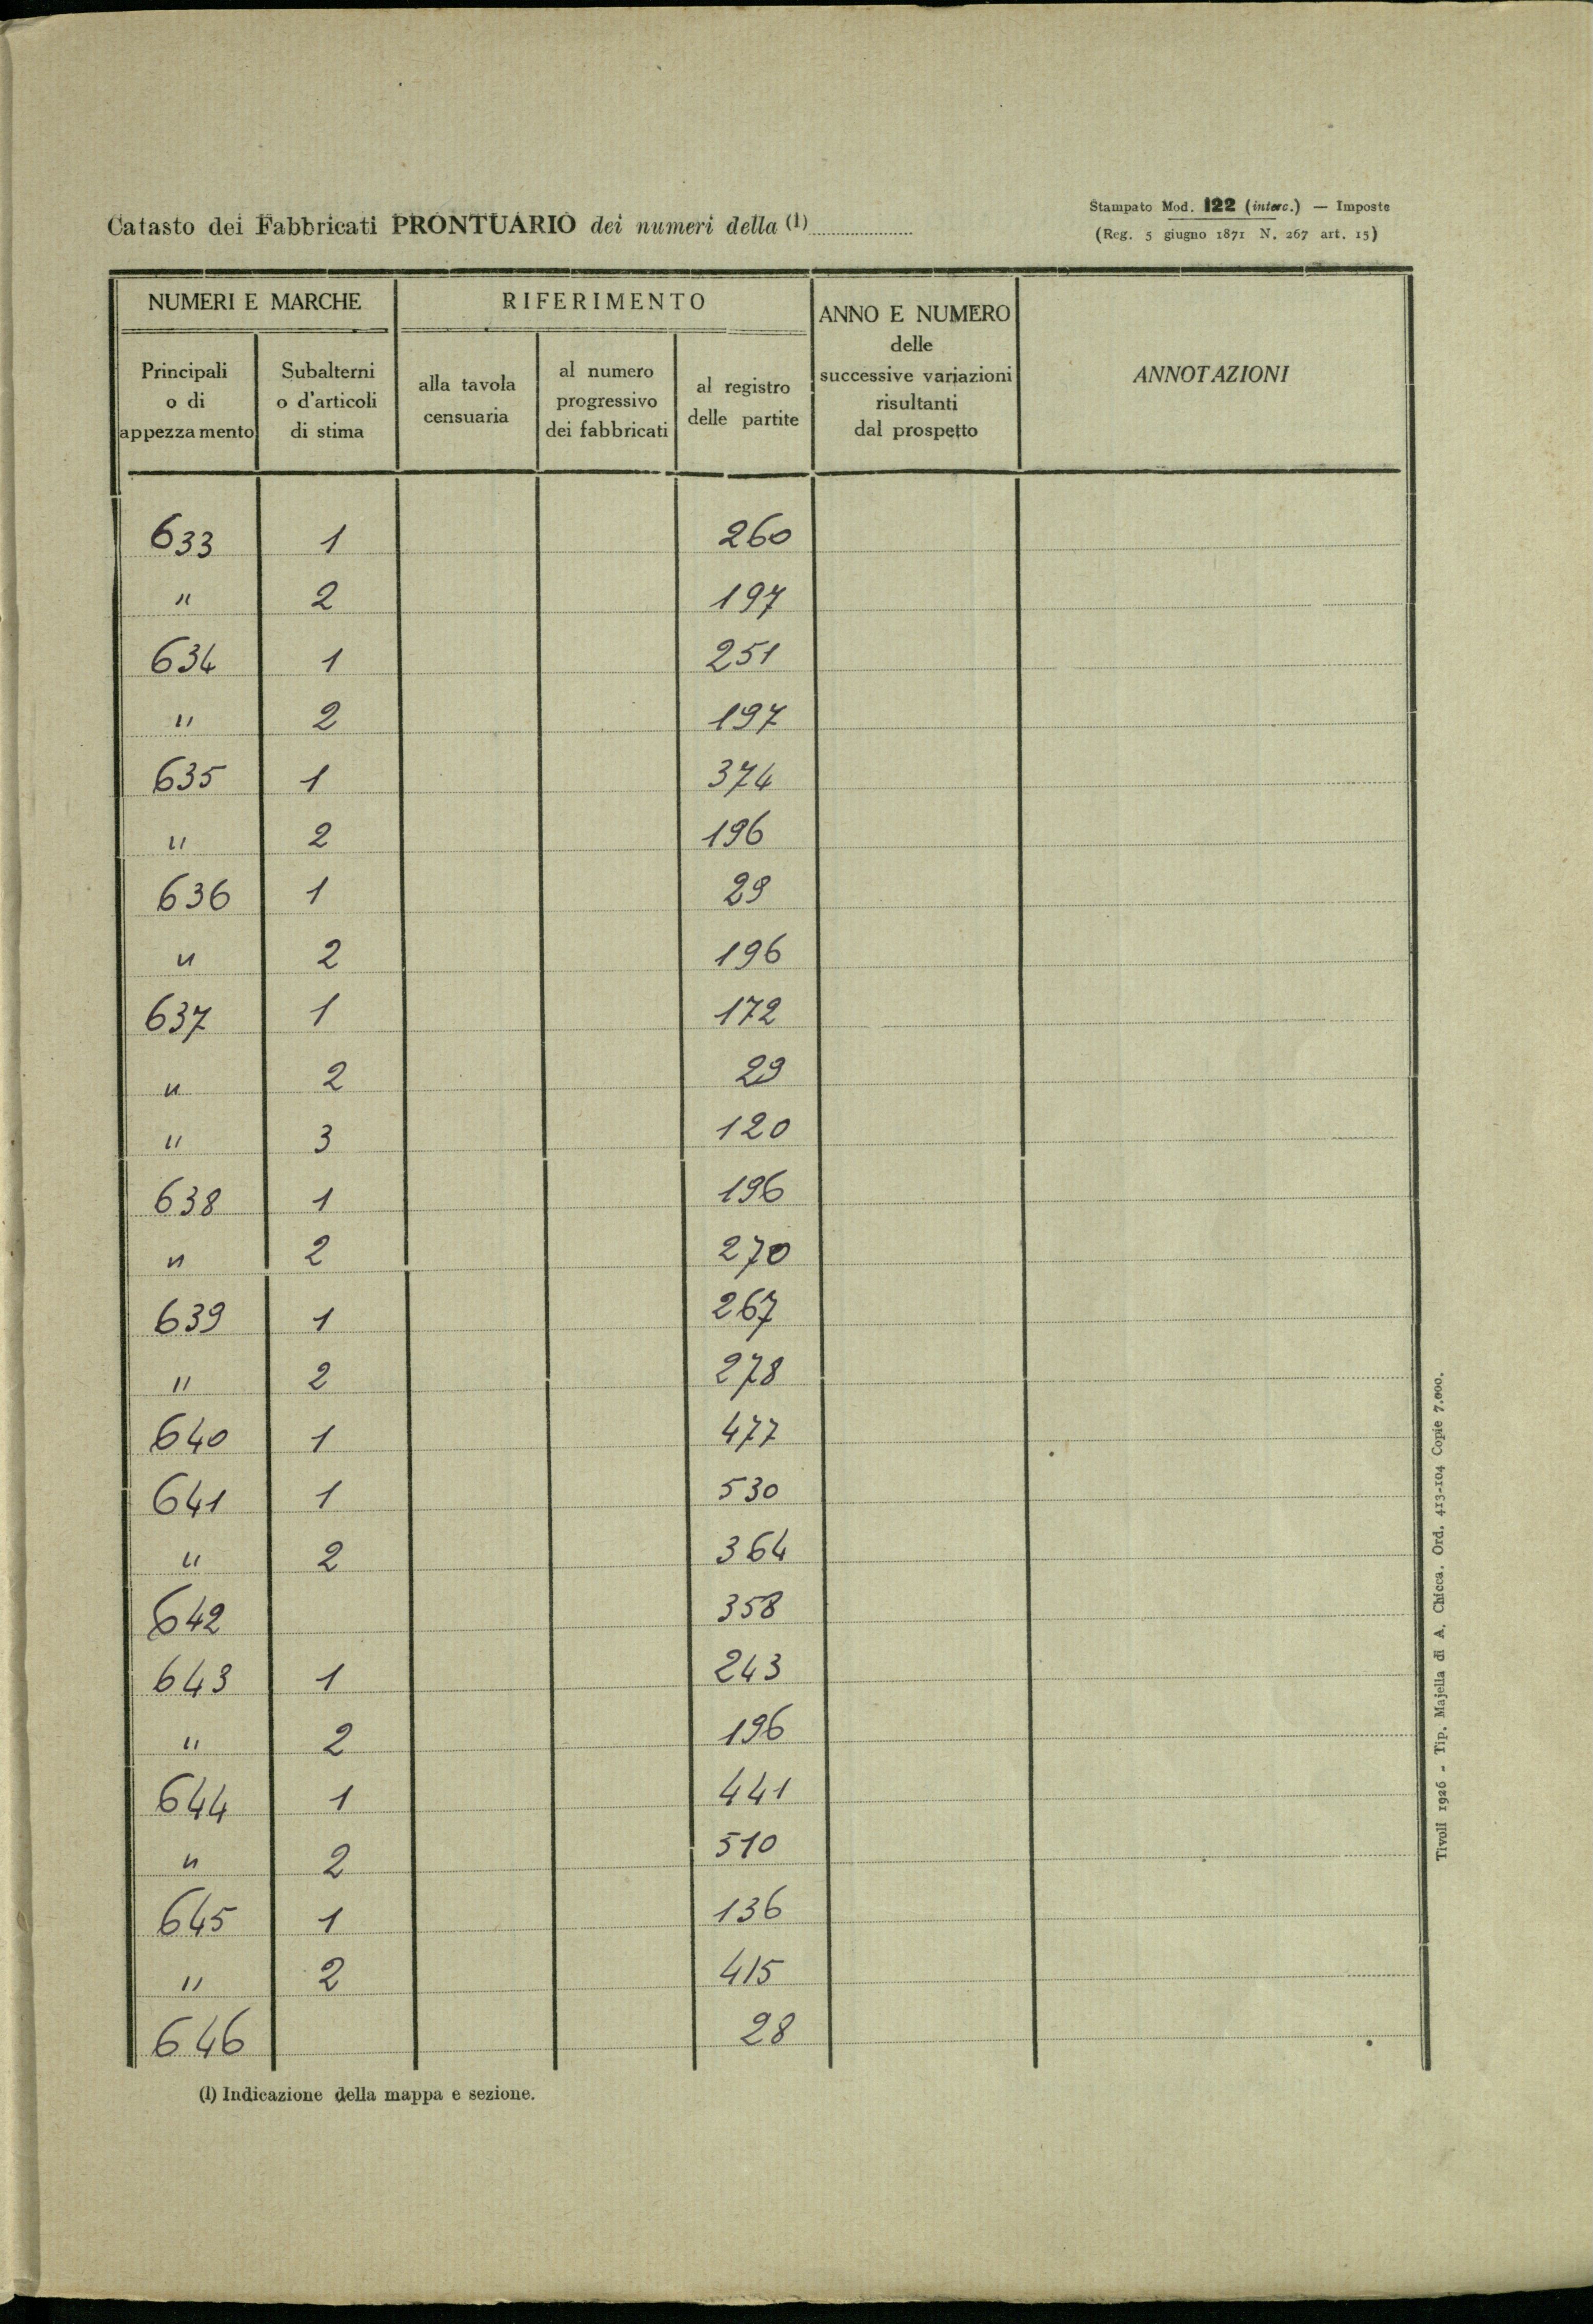 Catasto dei Fabbricati PRONTUARIO dei numeri della (1)
Stampato Mod. 122 (interc.) — Imposte
(Reg. 5 giugno 1871 N. 267 art. 15)
NUMERI E MARCHE
RIFERIMENTO
ANNO E NUMERO
delle
successive variazioni
risultanti
dal prospetto
ANNOTAZIONI
Principali
o di
appezzamento
Subalterni
o d'articoli
di stima
alla tavola
censuaria
al numero
progressivo
dei fabbricati
al registro
delle partite
633 1 260
" 2 197
634 1 251
" 2 197
635 1 374
" 2 196
636 1 29
" 2 196
637 1 172
" 2 29
" 3 120
638 1 196
" 2 270
639 1 267
" 2 278
640 1 477
641 1 530
" 2 364
642 358
643 1 243
" 2 196
644 1 441
" 2 510
645 1 136
" 2 415
646 28
(1) Indicazione della mappa e sezione.
Tivoli 1926 - Tip. Majella di A. Chicca. Ord. 413-104 Copie 7.000.